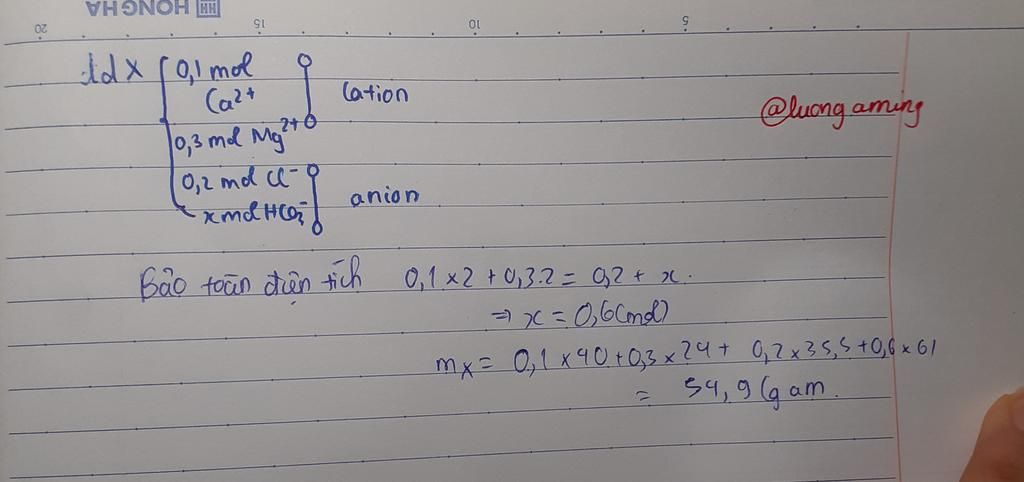 HONG HA
20 15 10 5
dd X 0,1 mol
Ca²⁺
0,3 mol Mg²⁺
cation
0,2 mol Cl⁻
x mol HCO₃⁻
anion
@luongaming
Bảo toàn điện tích 0,1 x 2 + 0,3.2 = 0,2 + x.
⇒ x = 0,6 (mol)
mₓ = 0,1 x 40 + 0,3 x 24 + 0,2 x 35,5 + 0,6 x 61
= 54,9 (g am.